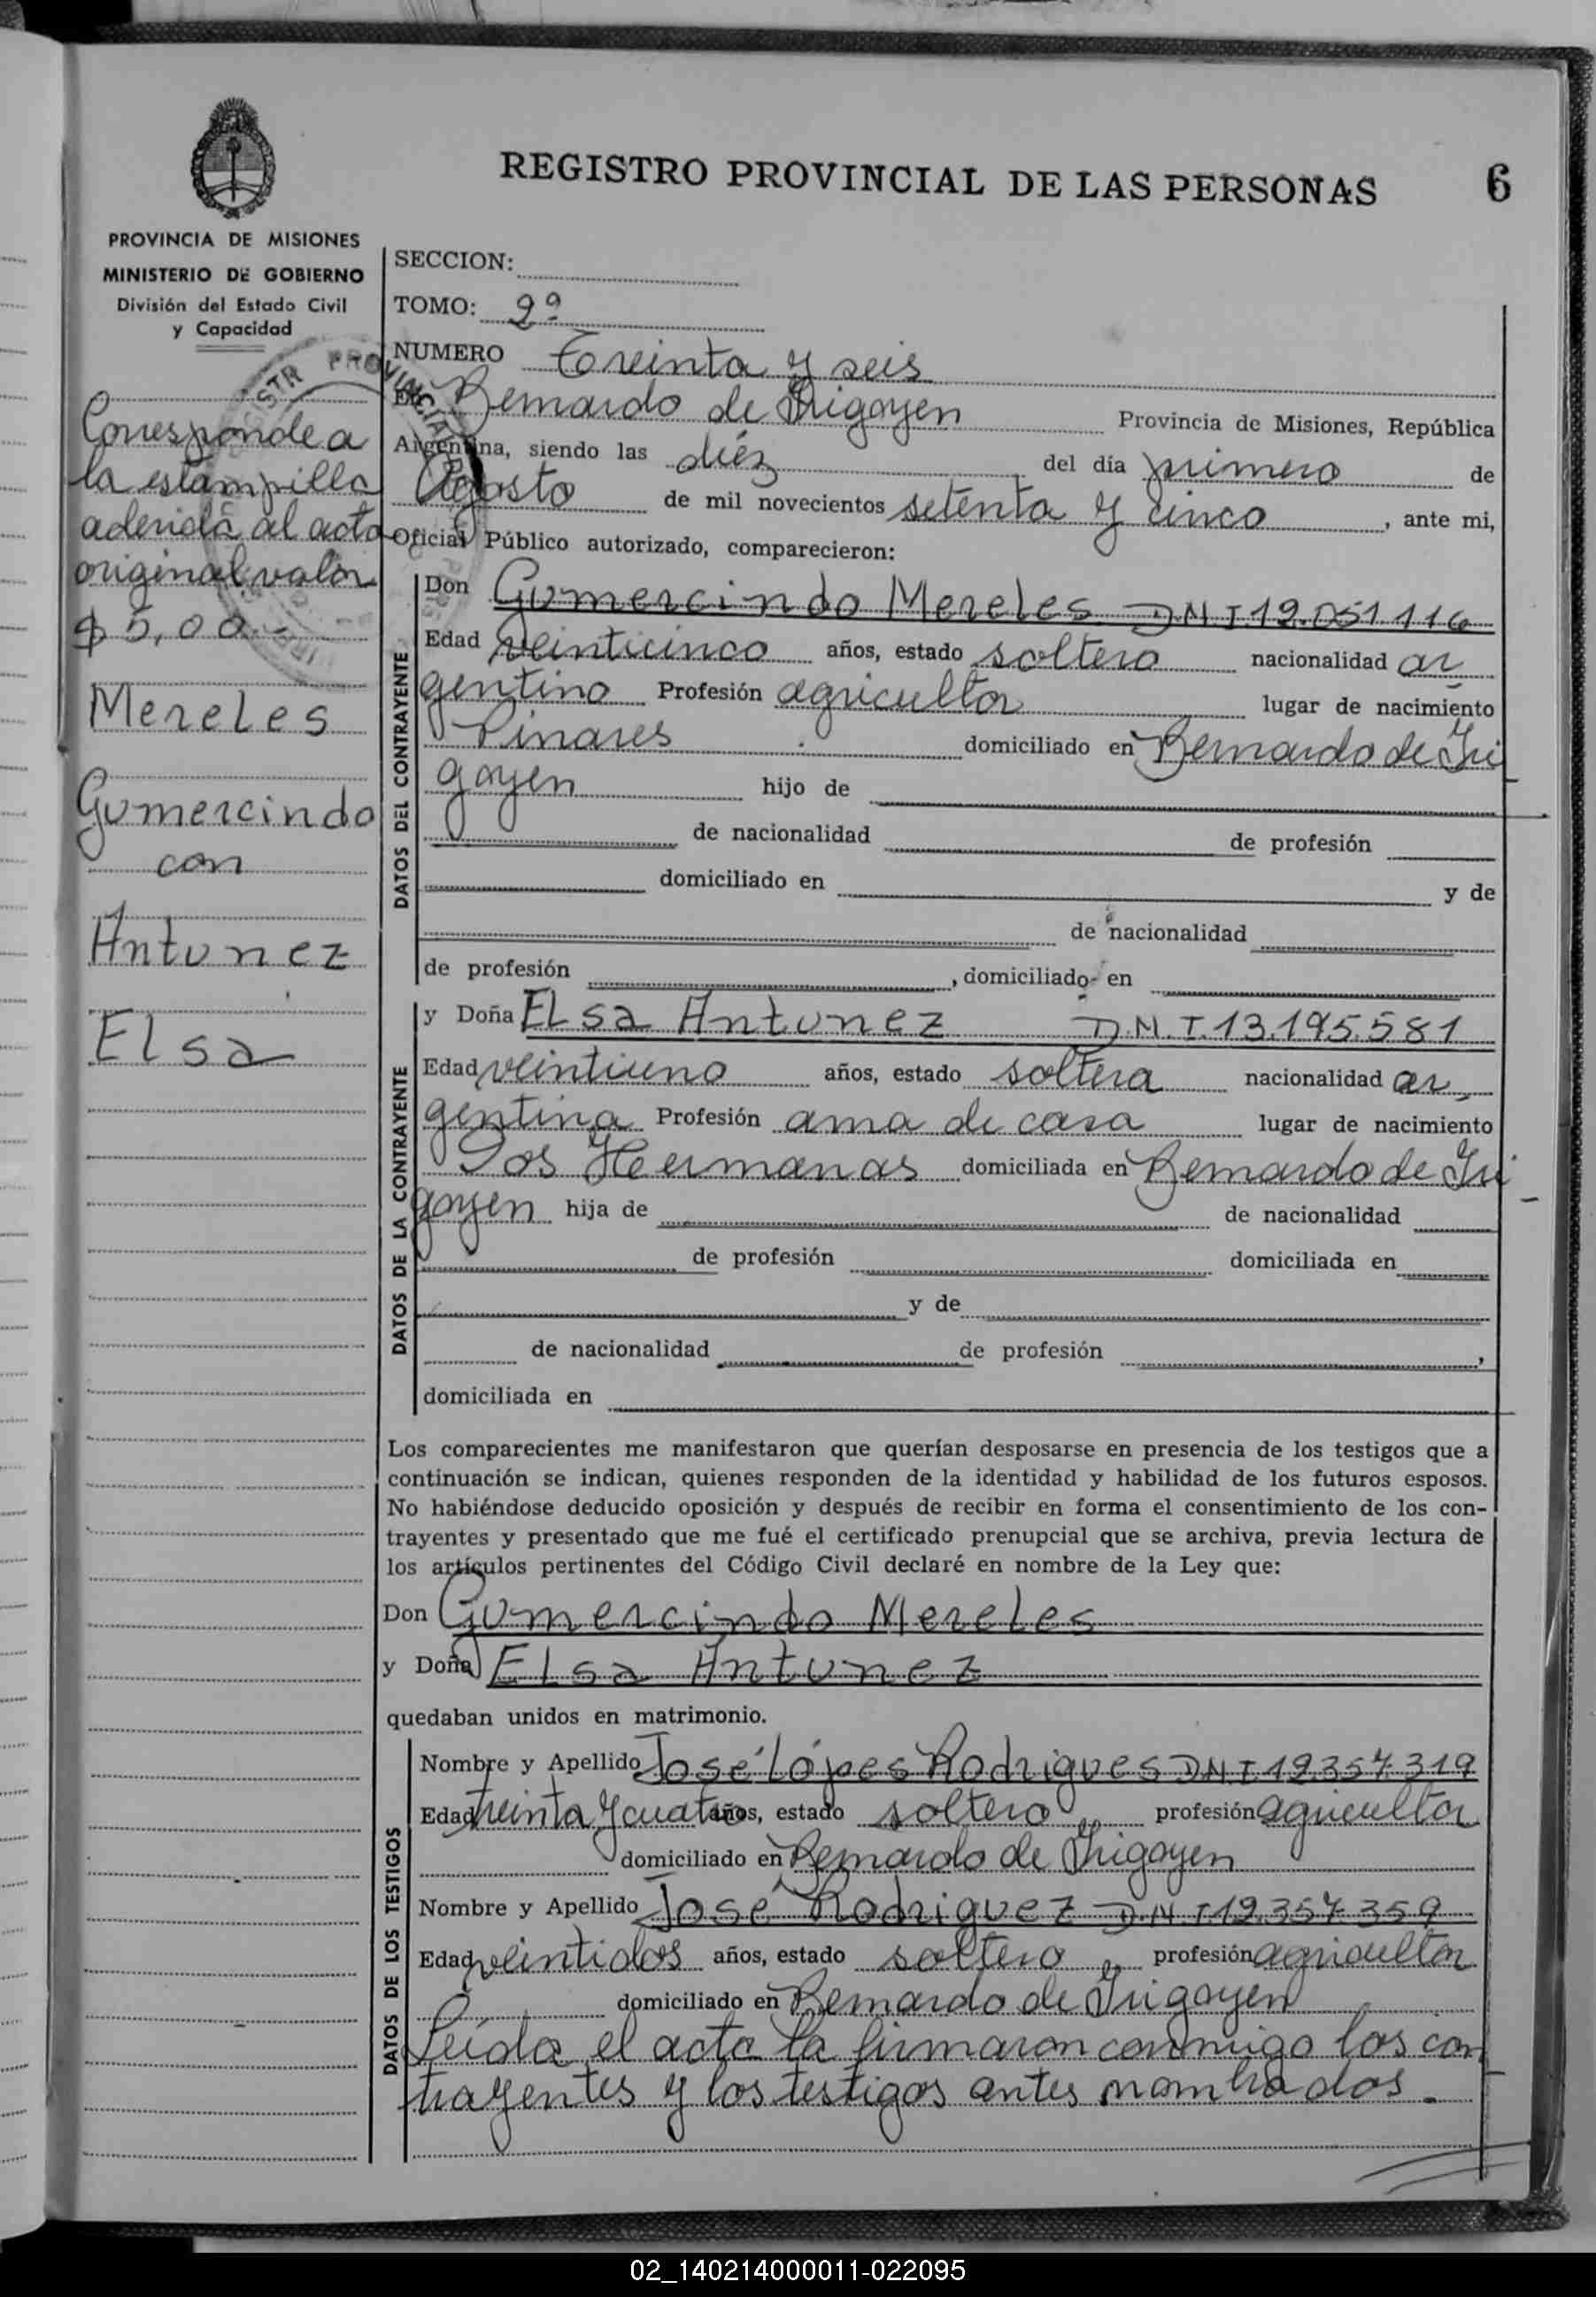 REGISTRO PROVINCIAL DE LAS PERSONAS
6
PROVINCIA DE MISIONES
MINISTERIO DE GOBIERNO
División del Estado Civil
y Capacidad
Corresponde a
la estampilla
aderida al acta
original valor
$ 5,00.-
Mereles
Gumercindo
con
Antunez
Elsa
SECCION:
TOMO: 2º
NUMERO Treinta y seis
En Bernardo de Irigoyen Provincia de Misiones, República
Argentina, siendo las diéz del día primero de
Agosto de mil novecientos setenta y cinco, ante mi,
Oficial Público autorizado, comparecieron:
DATOS DEL CONTRAYENTE
Don Gumercindo Mereles D.N.I.12.051.116
Edad veinticinco años, estado soltero nacionalidad ar
gentino Profesión agricultor lugar de nacimiento
Pinares domiciliado en Bernardo de Iri
goyen hijo de
de nacionalidad de profesión
domiciliado en y de
de nacionalidad
de profesión , domiciliado en
DATOS DE LA CONTRAYENTE
y Doña Elsa Antunez D.N.I.13.195.581
Edad veintiuno años, estado soltera nacionalidad ar
gentina Profesión ama de casa lugar de nacimiento
Dos Hermanas domiciliada en Bernardo de Iri
goyen hija de de nacionalidad
de profesión domiciliada en
y de
de nacionalidad de profesión ,
domiciliada en
Los comparecientes me manifestaron que querían desposarse en presencia de los testigos que a
continuación se indican, quienes responden de la identidad y habilidad de los futuros esposos.
No habiéndose deducido oposición y después de recibir en forma el consentimiento de los con-
trayentes y presentado que me fué el certificado prenupcial que se archiva, previa lectura de
los artículos pertinentes del Código Civil declaré en nombre de la Ley que:
Don Gumercindo Mereles
y Doña Elsa Antunez
quedaban unidos en matrimonio.
DATOS DE LOS TESTIGOS
Nombre y Apellido José Lópes Rodrigues D.N.I 12.357.319
Edad treinta y cuatro años, estado soltero profesión agricultor
domiciliado en Bernardo de Irigoyen
Nombre y Apellido José Rodriguez D.N.I.12.357.359
Edad veintidos años, estado soltero profesión agricultor
domiciliado en Bernardo de Irigoyen
Leída el acta la firmaron conmigo los con
trayentes y los testigos antes nombrados.
02_140214000011-022095